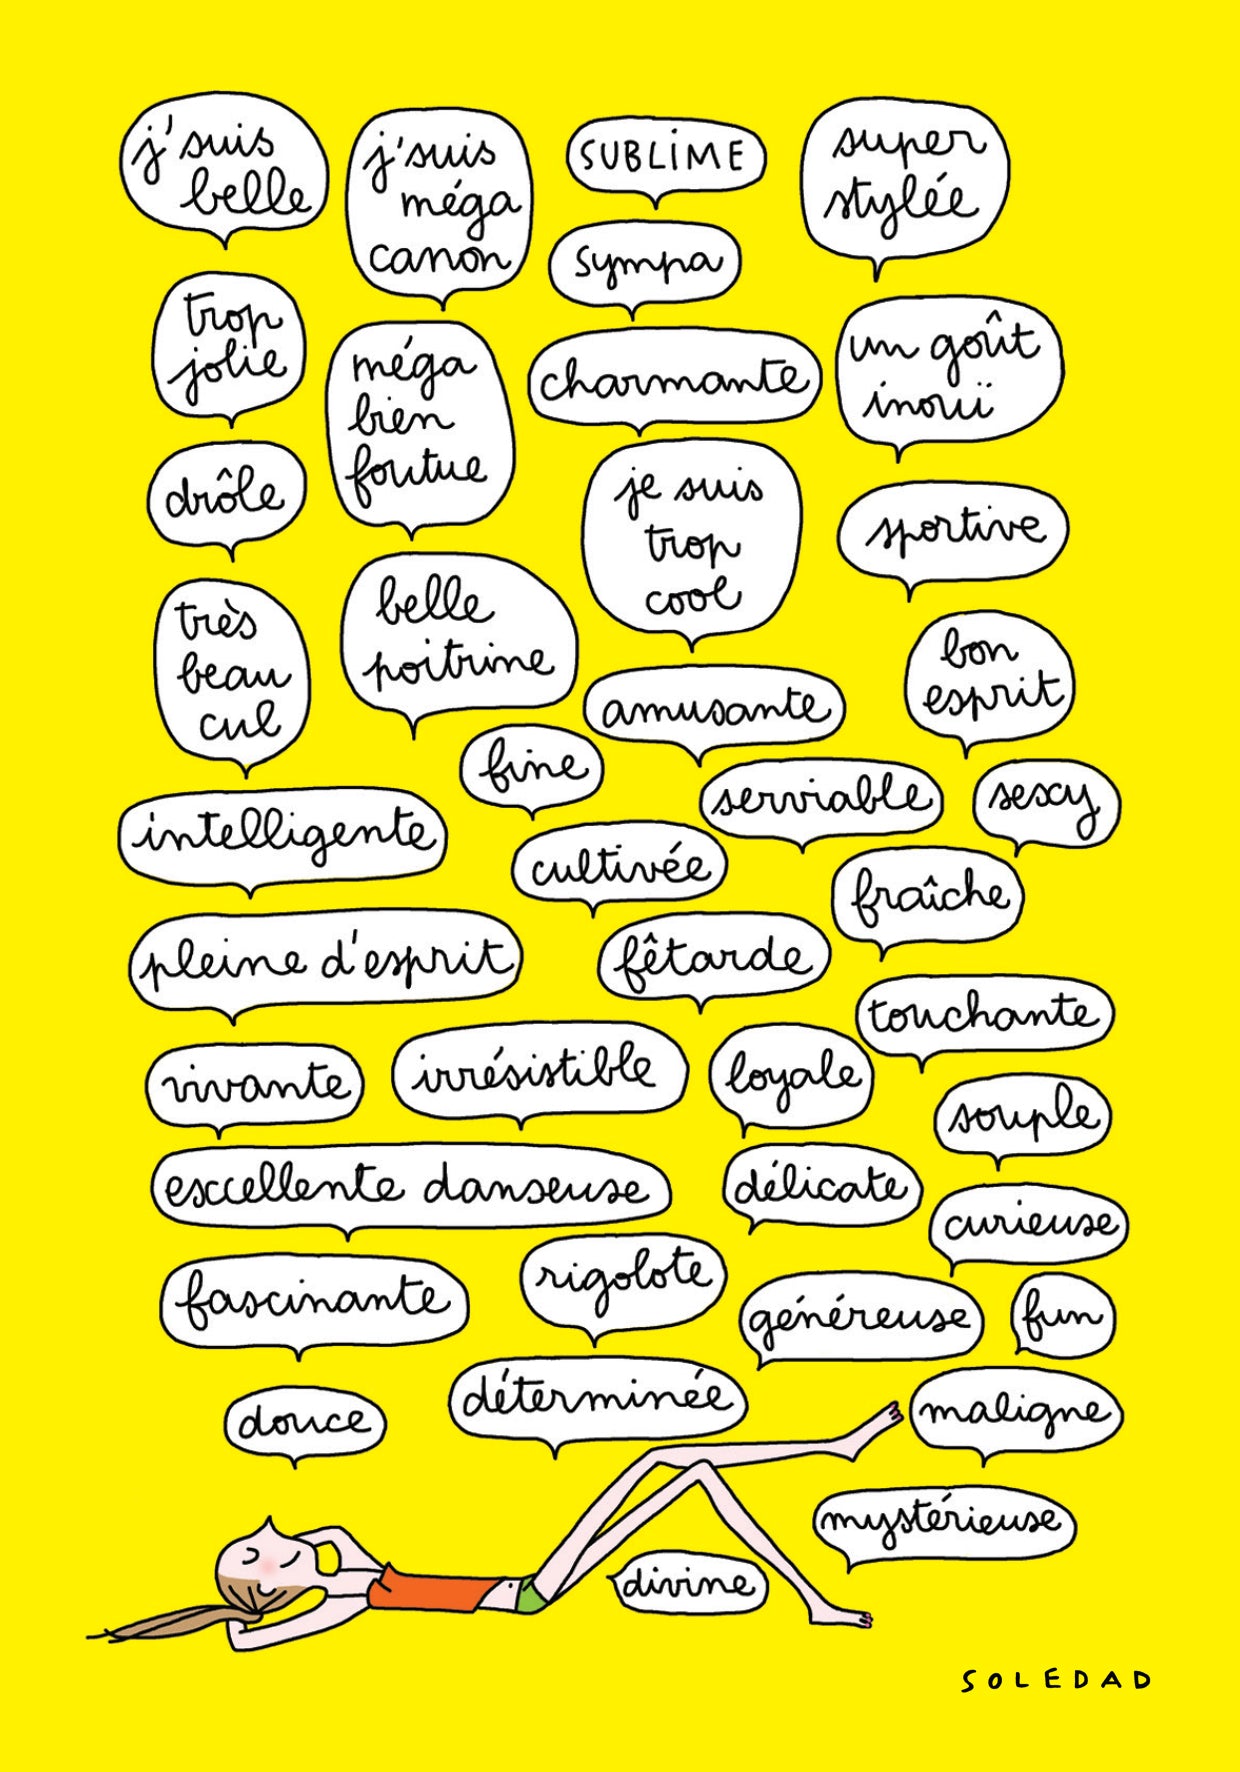 j'suis
belle
j'suis
méga
canon
SUBLiME
super
stylée
sympa
trop
jolie
méga
bien
foutue
charmante
un goût
inouï
drôle
je suis
trop
cool
sportive
très
beau
cul
belle
poitrine
amusante
bon
esprit
fine
serviable
sexy
intelligente
cultivée
fraîche
pleine d'esprit
fêtarde
touchante
vivante
irrésistible
loyale
souple
excellente danseuse
délicate
curieuse
fascinante
rigolote
généreuse
fun
douce
déterminée
maligne
mystérieuse
divine
SOLEDAD